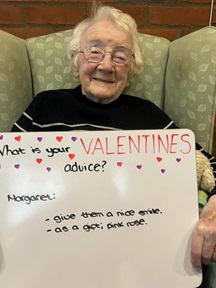 What is your VALENTINES
advice?
Margaret:
- give them a nice smile.
- as a gift; pink rose.